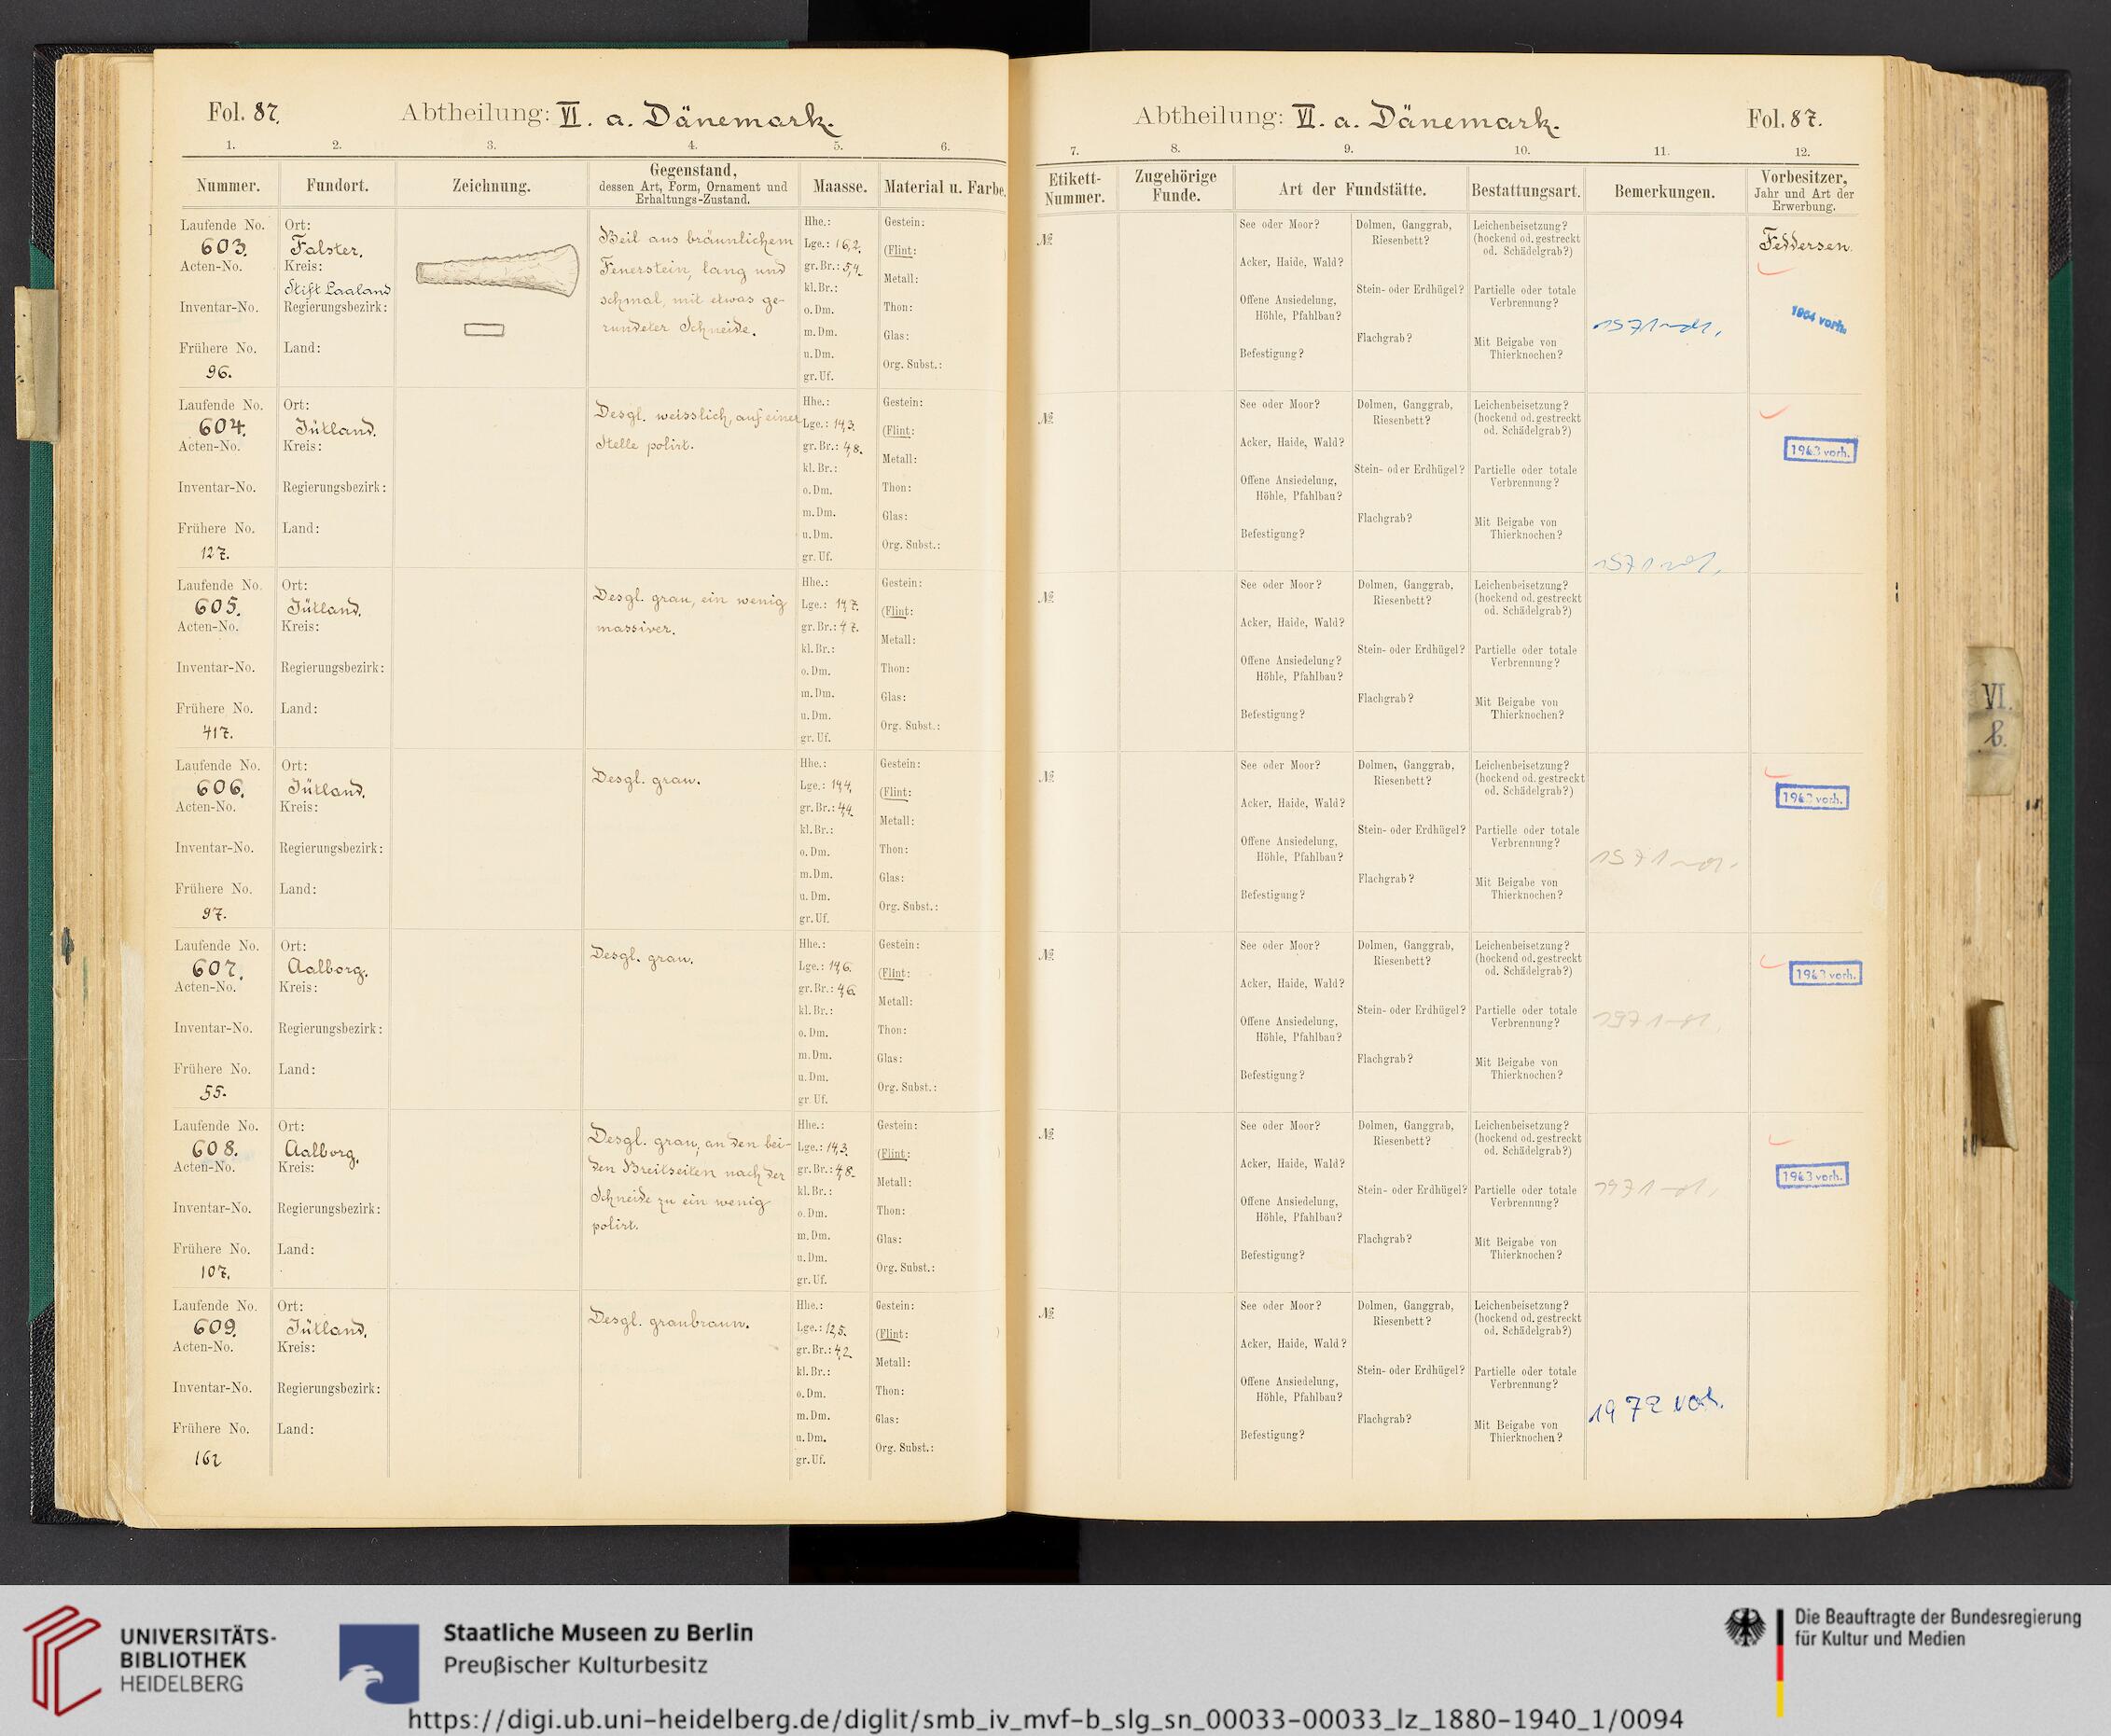 Fol. 87.
Abtheilung: VI. a. Dänemark.
1. 2. 3. 4. 5. 6.
Nummer. Fundort. Zeichnung. Gegenstand, dessen Art, Form, Ornament und Erhaltungs-Zustand. Maasse. Material u. Farbe.
Laufende No. 603.
Acten-No.
Inventar-No.
Frühere No. 96.
Ort: Falster.
Kreis: Stift Laaland
Regierungsbezirk:
Land:
Beil aus bräunlichem
Feuerstein, lang und
schmal, mit etwas ge-
rundeter Schneide.
Hhe.:
Lge.: 16,2.
gr. Br.: 5,4.
kl. Br.:
o. Dm.
m. Dm.
u. Dm.
gr. Uf.
Gestein:
(Flint:
Metall:
Thon:
Glas:
Org. Subst.:
Laufende No. 604.
Acten-No.
Inventar-No.
Frühere No. 127.
Ort: Jütland.
Kreis:
Regierungsbezirk:
Land:
Desgl. weisslich, auf einer
Stelle polirt.
Hhe.:
Lge.: 14,3.
gr. Br.: 4,8.
kl. Br.:
o. Dm.
m. Dm.
u. Dm.
gr. Uf.
Gestein:
(Flint:
Metall:
Thon:
Glas:
Org. Subst.:
Laufende No. 605.
Acten-No.
Inventar-No.
Frühere No. 417.
Ort: Jütland.
Kreis:
Regierungsbezirk:
Land:
Desgl. grau, ein wenig
massiver.
Hhe.:
Lge.: 14,7.
gr. Br.: 4,7.
kl. Br.:
o. Dm.
m. Dm.
u. Dm.
gr. Uf.
Gestein:
(Flint:
Metall:
Thon:
Glas:
Org. Subst.:
Laufende No. 606.
Acten-No.
Inventar-No.
Frühere No. 97.
Ort: Jütland.
Kreis:
Regierungsbezirk:
Land:
Desgl. grau.
Hhe.:
Lge.: 14,4.
gr. Br.: 4,4.
kl. Br.:
o. Dm.
m. Dm.
u. Dm.
gr. Uf.
Gestein:
(Flint:
Metall:
Thon:
Glas:
Org. Subst.:
Laufende No. 607.
Acten-No.
Inventar-No.
Frühere No. 55.
Ort: Aalborg.
Kreis:
Regierungsbezirk:
Land:
Desgl. grau.
Hhe.:
Lge.: 14,6.
gr. Br.: 4,6.
kl. Br.:
o. Dm.
m. Dm.
u. Dm.
gr. Uf.
Gestein:
(Flint:
Metall:
Thon:
Glas:
Org. Subst.:
Laufende No. 608.
Acten-No.
Inventar-No.
Frühere No. 107.
Ort: Aalborg.
Kreis:
Regierungsbezirk:
Land:
Desgl. grau, an den bei-
den Breitseiten nach der
Schneide zu ein wenig
polirt.
Hhe.:
Lge.: 14,3.
gr. Br.: 4,8.
kl. Br.:
o. Dm.
m. Dm.
u. Dm.
gr. Uf.
Gestein:
(Flint:
Metall:
Thon:
Glas:
Org. Subst.:
Laufende No. 609.
Acten-No.
Inventar-No.
Frühere No. 162
Ort: Jütland.
Kreis:
Regierungsbezirk:
Land:
Desgl. graubraun.
Hhe.:
Lge.: 12,5.
gr. Br.: 4,2.
kl. Br.:
o. Dm.
m. Dm.
u. Dm.
gr. Uf.
Gestein:
(Flint:
Metall:
Thon:
Glas:
Org. Subst.:
Abtheilung: VI. a. Dänemark.
Fol. 87.
7. 8. 9. 10. 11. 12.
Etikett-Nummer. Zugehörige Funde. Art der Fundstätte. Bestattungsart. Bemerkungen. Vorbesitzer, Jahr und Art der Erwerbung.
№
See oder Moor?
Acker, Haide, Wald?
Offene Ansiedelung,
Höhle, Pfahlbau?
Befestigung?
Dolmen, Ganggrab,
Riesenbett?
Stein- oder Erdhügel?
Flachgrab?
Leichenbeisetzung?
(hockend od. gestreckt
od. Schädelgrab?)
Partielle oder totale
Verbrennung?
Mit Beigabe von
Thierknochen?
Feddersen.
1964 vorh.
№
See oder Moor?
Acker, Haide, Wald?
Offene Ansiedelung,
Höhle, Pfahlbau?
Befestigung?
Dolmen, Ganggrab,
Riesenbett?
Stein- oder Erdhügel?
Flachgrab?
Leichenbeisetzung?
(hockend od. gestreckt
od. Schädelgrab?)
Partielle oder totale
Verbrennung?
Mit Beigabe von
Thierknochen?
1963 vorh.
№
See oder Moor?
Acker, Haide, Wald?
Offene Ansiedelung?
Höhle, Pfahlbau?
Befestigung?
Dolmen, Ganggrab,
Riesenbett?
Stein- oder Erdhügel?
Flachgrab?
Leichenbeisetzung?
(hockend od. gestreckt
od. Schädelgrab?)
Partielle oder totale
Verbrennung?
Mit Beigabe von
Thierknochen?
№
See oder Moor?
Acker, Haide, Wald?
Offene Ansiedelung,
Höhle, Pfahlbau?
Befestigung?
Dolmen, Ganggrab,
Riesenbett?
Stein- oder Erdhügel?
Flachgrab?
Leichenbeisetzung?
(hockend od. gestreckt
od. Schädelgrab?)
Partielle oder totale
Verbrennung?
Mit Beigabe von
Thierknochen?
1963 vorh.
№
See oder Moor?
Acker, Haide, Wald?
Offene Ansiedelung,
Höhle, Pfahlbau?
Befestigung?
Dolmen, Ganggrab,
Riesenbett?
Stein- oder Erdhügel?
Flachgrab?
Leichenbeisetzung?
(hockend od. gestreckt
od. Schädelgrab?)
Partielle oder totale
Verbrennung?
Mit Beigabe von
Thierknochen?
1963 vorh.
№
See oder Moor?
Acker, Haide, Wald?
Offene Ansiedelung,
Höhle, Pfahlbau?
Befestigung?
Dolmen, Ganggrab,
Riesenbett?
Stein- oder Erdhügel?
Flachgrab?
Leichenbeisetzung?
(hockend od. gestreckt
od. Schädelgrab?)
Partielle oder totale
Verbrennung?
Mit Beigabe von
Thierknochen?
1963 vorh.
№
See oder Moor?
Acker, Haide, Wald?
Offene Ansiedelung,
Höhle, Pfahlbau?
Befestigung?
Dolmen, Ganggrab,
Riesenbett?
Stein- oder Erdhügel?
Flachgrab?
Leichenbeisetzung?
(hockend od. gestreckt
od. Schädelgrab?)
Partielle oder totale
Verbrennung?
Mit Beigabe von
Thierknochen?
1972 voh.
VI.
b.
UNIVERSITÄTS-
BIBLIOTHEK
HEIDELBERG
Staatliche Museen zu Berlin
Preußischer Kulturbesitz
Die Beauftragte der Bundesregierung
für Kultur und Medien
https://digi.ub.uni-heidelberg.de/diglit/smb_iv_mvf-b_slg_sn_00033-00033_lz_1880-1940_1/0094